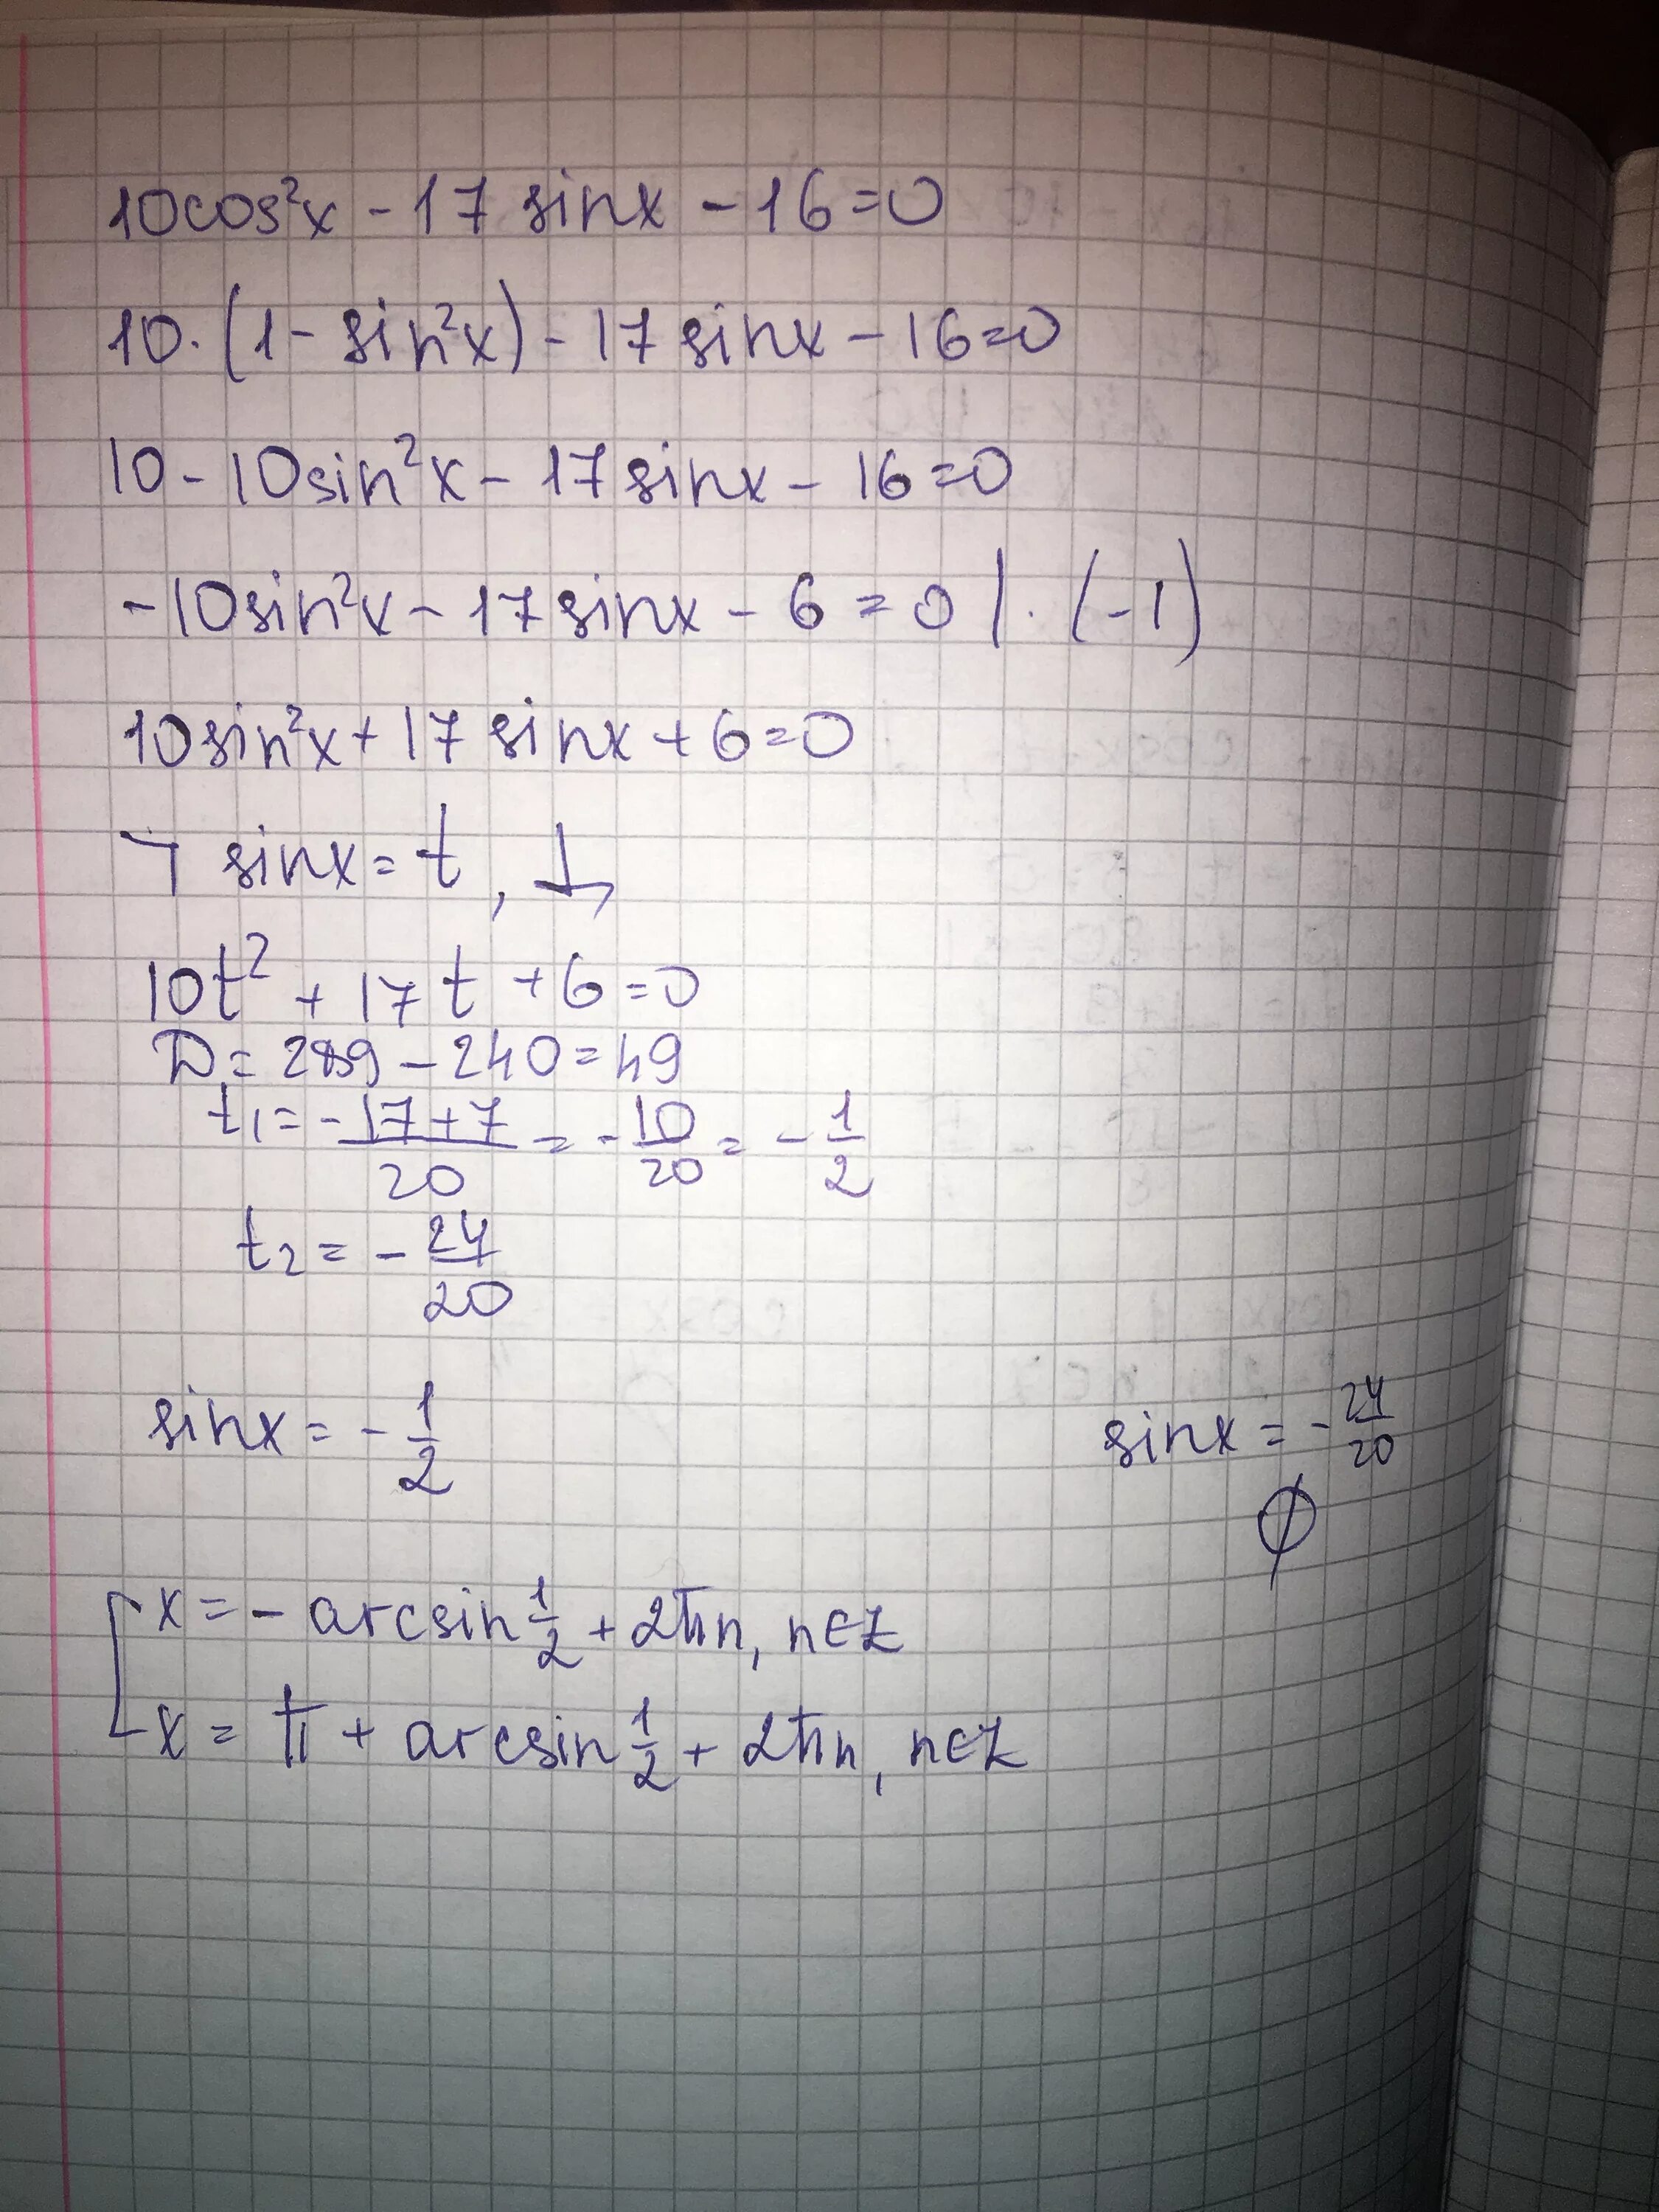 10cos²x - 17 sinx - 16=0
10·(1 - sin²x) - 17 sinx - 16=0
10 - 10sin²x - 17 sinx - 16=0
-10sin²x - 17 sinx - 6 = 0 | · (-1)
10sin²x + 17 sinx + 6=0
sinx = t,
10t² + 17t + 6 = 0
D = 289 - 240 = 49
t₁ = -17+7/20 = -10/20 = -1/2
t₂ = -24/20
sinx = -1/2 sinx = -24/20
∅
[ x = - arcsin 1/2 + 2πn, n∈Z
x = π + arcsin 1/2 + 2πn, n∈Z